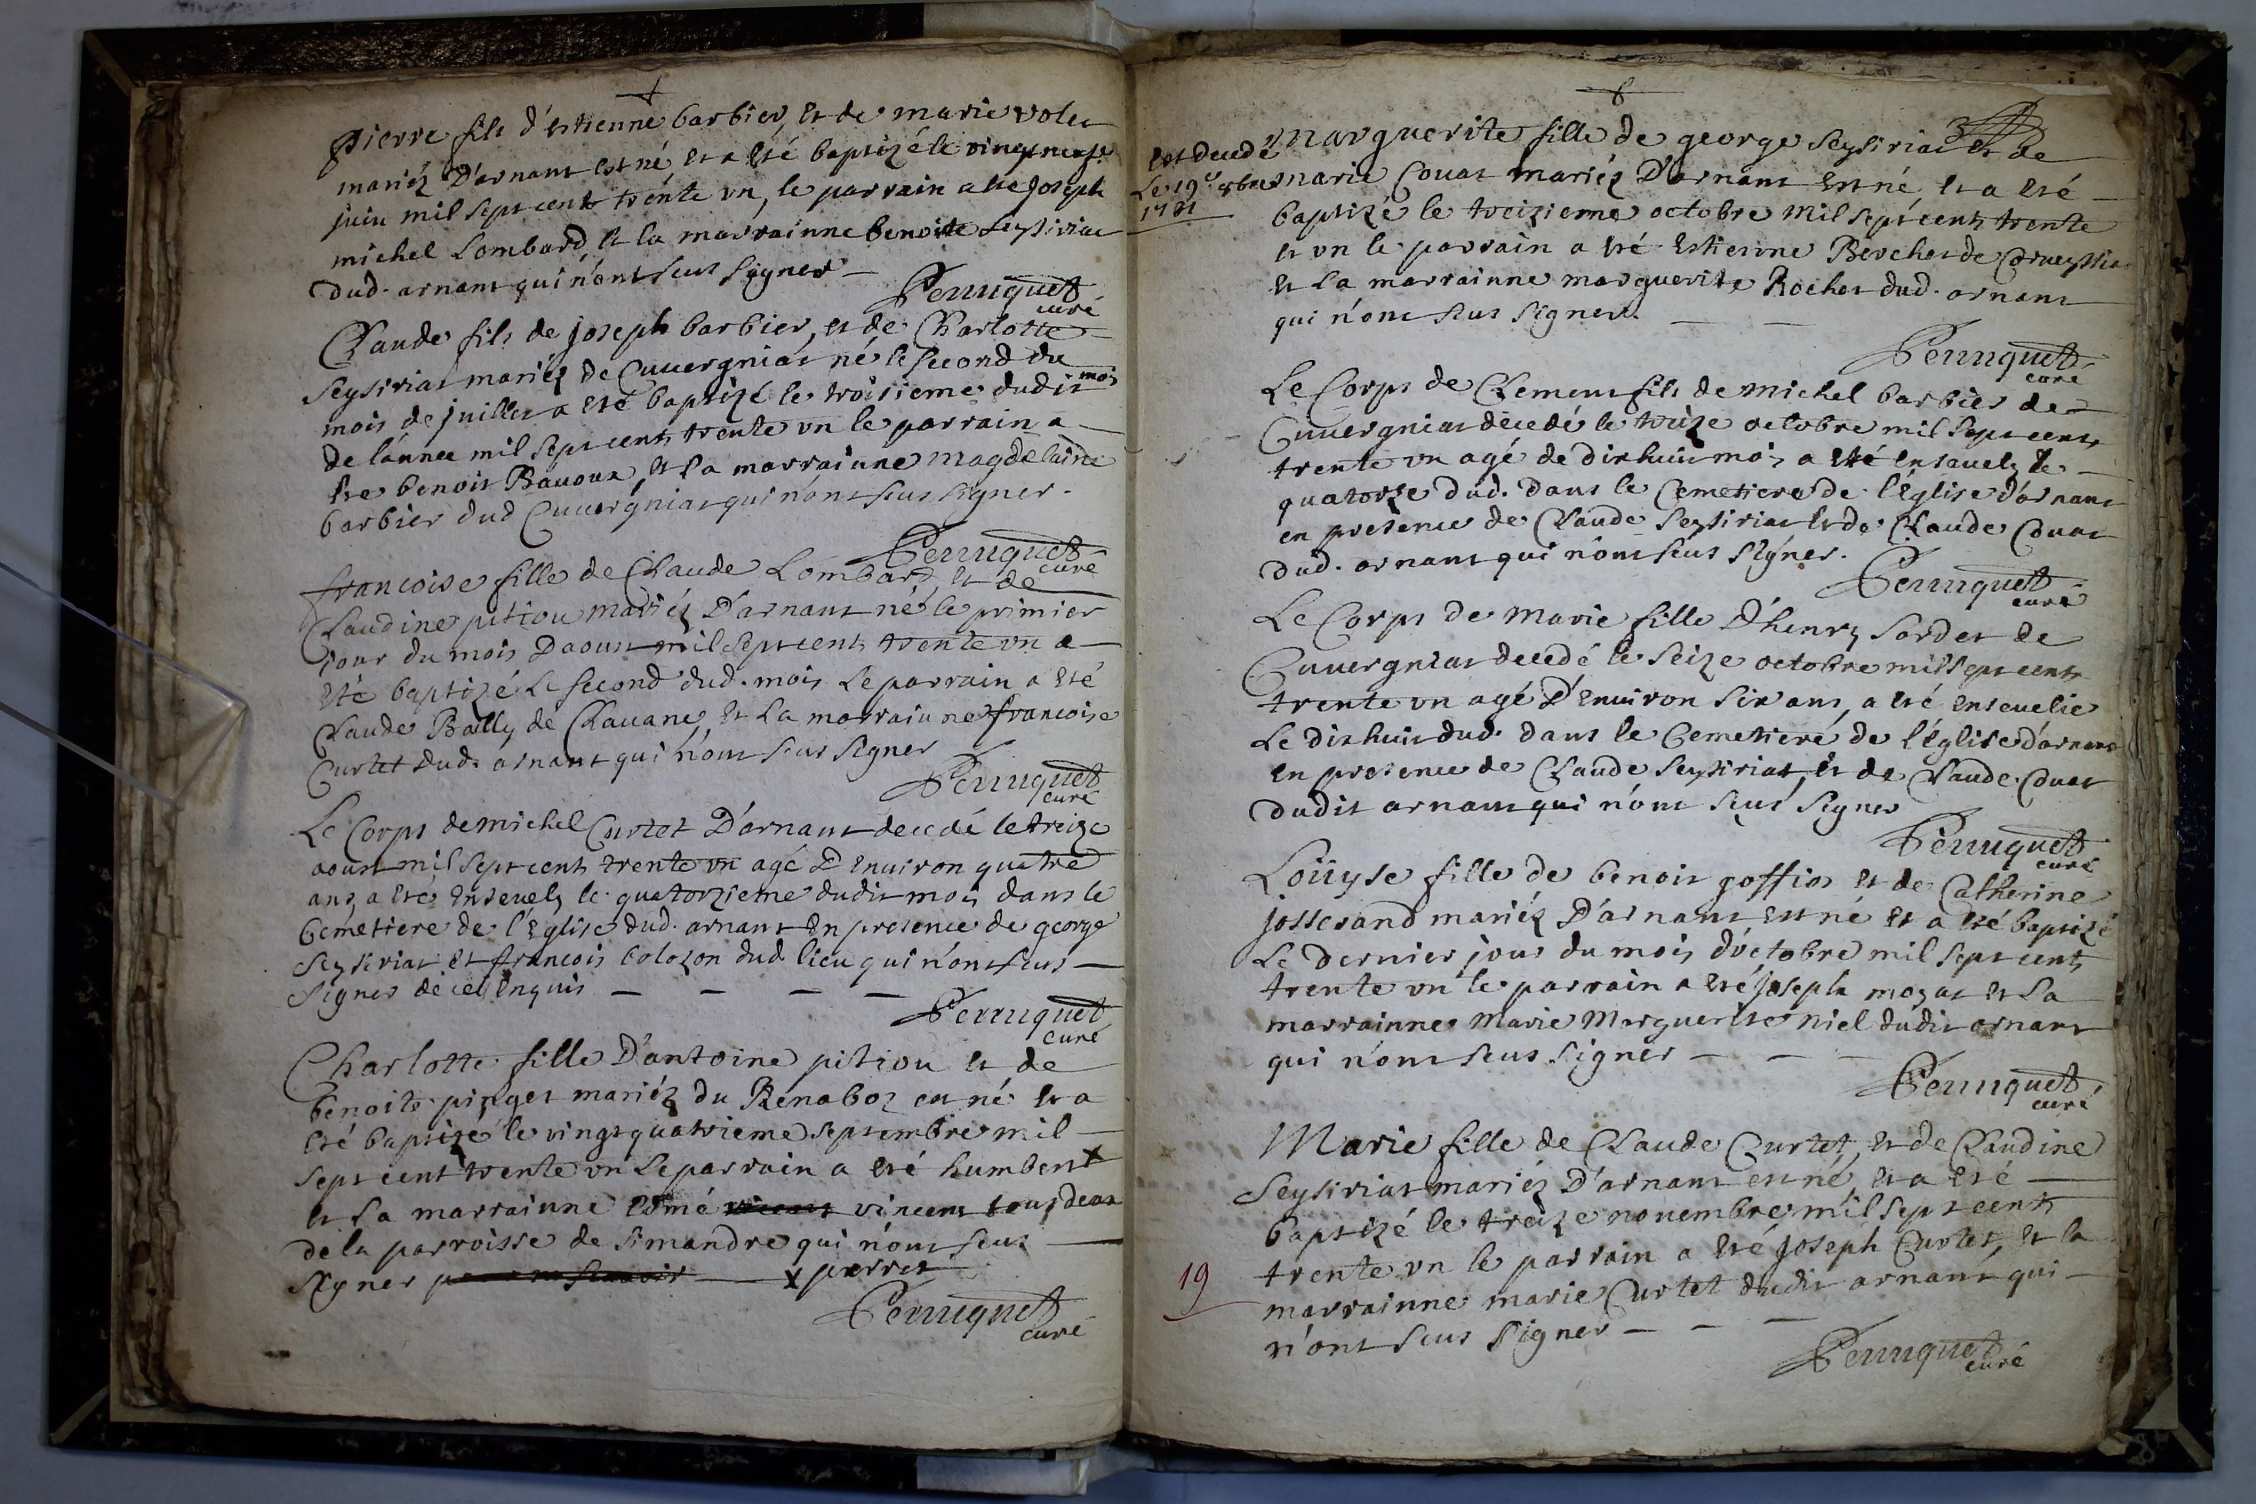 Pierre fils d'estienne barbier, et de marie volet
mariéz D'arnant est né, et a eté baptizé le vingt neuf
juin mil sept cents trente un, le parrain a ete Joseph
michel Lombard et la marrainne benoite Seysiriat
dud. arnant qui n'ont seus signer —
Perruquet
curé
Claude fils de joseph barbier, et de Charlotte
Seysiriat mariéz de Cuvergniat né le second du
mois de juillet a eté baptizé le troisieme dudit mois
de l'année mil sept cents trente un le parrain a —
ete benoit Bavoux, et la marrainne magdelaine
barbier dud Cuvergniat qui n'ont seus signer.
Perruquet
curé
francoise fille de Claude Lombard et de
Claudine pitiou mariéz D'arnant né le primier
jour du mois Daoust mil sept cents trente un a —
eté baptizé le second dud. mois le parrain a eté
Claude Bally de Chavane, et la marrainne francoise
Curtet dud. arnant qui n'ont seus signer
Perruquet
curé
Le Corps de michel Curtet D'arnant decedé le treize
aoust mil sept cents trente un agé D'environ quatre
ans a eté ensevely le quatorzieme dudit mois dans le
Cemetiere de l'Eglise dud. arnant en presence de george
Seysiriat et francois bolozon dud. lieu qui n'ont seus —
signer de ce enquis — — — —
Perruquet
curé
Charlotte fille D'antoine pitiou et de
benoite pinget mariéz du Renaboz est né et a
eté baptizé le vingt quatrieme septembre mil —
sept cent trente un le parrain a eté humbert x
et la marrainne edmé vincent tous deux
de la parroisse de simandre qui n'ont seus —
signer — x perret
Perruquet
curé
est decedé
Le 19e 8bre
1731
Marguerite fille de george Seysiriat et de
marie Couat mariéz D'arnant est né, et a eté —
baptizé le treizieme octobre mil sept cents trente
et un le parrain a eté Estienne Berchet de Corveyssia
et la marrainne marguerite Rochet dud. arnant
qui n'ont seus signer. — —
Perruquet
curé
Le Corps de Clement fils de michel barbier de —
Cuvergniat decedé le treize octobre mil sept cents
trente un agé de dix huit mois a eté ensevely le —
quatorze dud. dans le Cemetiere de l'Eglise d'arnant
en presence de Claude Seysiriat et de Claude Couat
dud. arnant qui n'ont seus signer.
Perruquet
curé
Le Corps de marie fille D'henry Sordet de
Cuvergniat decedé le seize octobre mil sept cents
trente un agé D'environ six ans, a eté ensevelie
Le dix huit dud. dans le Cemetiere de l'église d'arnant
en presence de Claude Seysiriat, et de Claude Couat
dudit arnant qui n'ont seus signer
Perruquet
curé
Loüyse fille de benoit goffioz et de Catherine
josserand mariéz D'arnant est né et a eté baptizé
Le dernier jour du mois d'octobre mil sept cents
trente un le parrain a eté joseph mozat et la
marrainne Marie Marguerite niel dudit arnant
qui n'ont seus signer — — —
Perruquet
curé
Marie fille de Claude Curtet, et de Claudine
Seysiriat mariéz D'arnant est né, et a eté —
baptizé le treize novembre mil sept cents
trente un le parrain a eté joseph Curtet, et la
19
marrainne marie Curtet dudit arnant qui —
n'ont seus signer — — —
Perruquet
curé